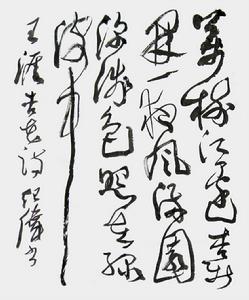 萬树江边杏新
开一夜风满园
深浅色照在绿
波中
王涯 诗 书